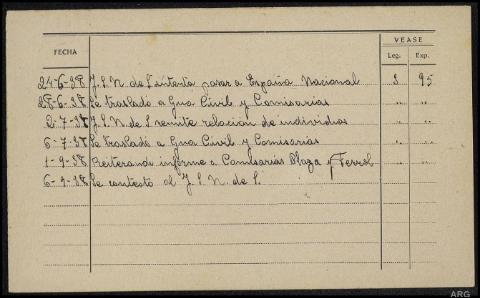 VEASE
FECHA Leg. Exp.
24-6-38 J.S.N. de S. intenta pasar a España Nacional 3 95
28-6-38 Se trasladó a Gua Civil y Comisarias " "
2-7-38 J.S.N. de S remite relacion de individuos " "
6-7-38 Se traslado a Gua Civil y Comisarias " "
1-9-38 Reiterando informe a Comisarias Plaza y Ferrol " "
6-9-38 Se contestó al J.S.N. de S.
ARG